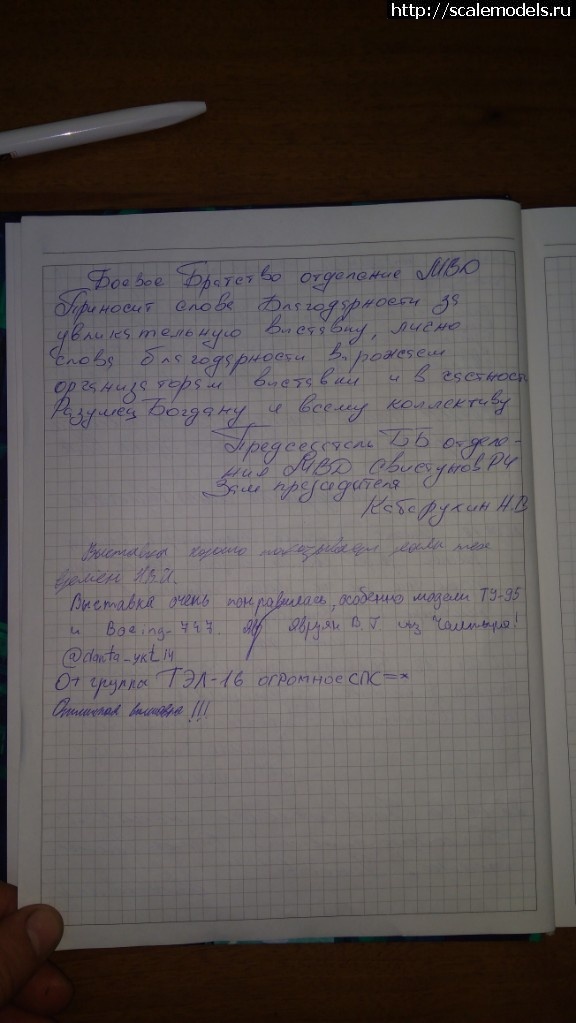 http://scalemodels.ru
Боевое Братство отделение МВД
Приносит слова Благодарности за
увлекательную виставку, лично
слова благодарности вырожаем
организаторам виставки и в частност
Разумец Богдану и всему коллективу
Председатель ББ отделе-
ния МВД Свистунов РЧ
Зам председателя
Кабарухин Н.В
Выставка хорошо
времен
Выставка очень понравилась, особенно модели ТУ-95
и Boeing-747. Явруян В Г из Чалтыря!
@danta_ykt14
От группы ТЭЛ-16 огромное СПС=*
Отличная выставка!!!